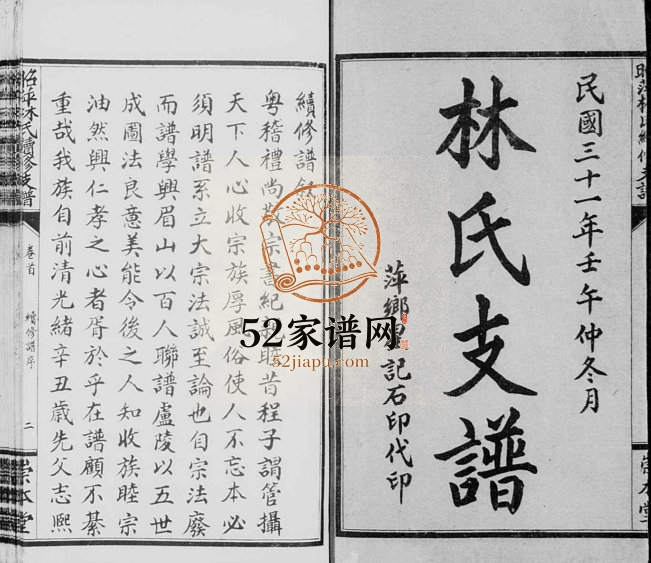 民國三十一年壬午仲冬月
林氏支譜
萍鄉
記石印代印
崇本堂
續修譜
粵稽禮尚
宗書紀
昔程子謂管攝
天下人心收宗族厚風俗使人不忘本必
須明譜系立大宗法誠至論也自宗法廢
而譜學興眉山以百人聯譜盧陵以五世
成圖法良意美能令後之人知收族睦宗
油然興仁孝之心者胥於乎在譜顧不綦
重哉我族自前清光緒辛丑歲先父志熙
卷首
續修譜序
二
崇本堂
52家谱网
52jiapu.com